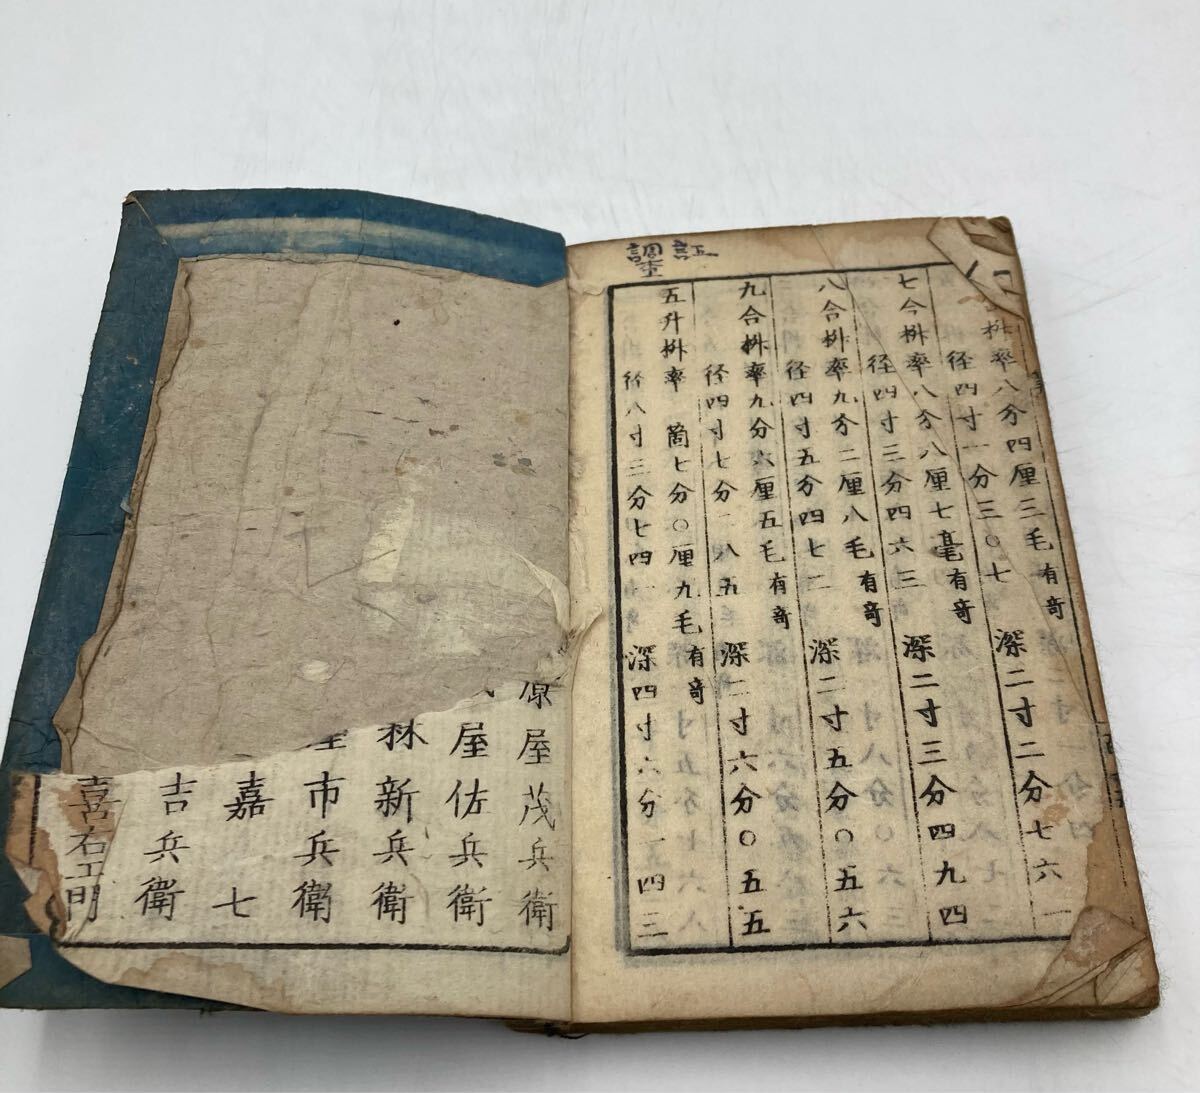 調査 訂
桝率八分四厘三毛有奇
径四寸一分三〇七 深二寸二分七六一
七合桝率八分八厘七毫有奇
径四寸三分四六三 深二寸三分四九四
八合桝率九分二厘八毛有奇
径四寸五分四七二 深二寸五分〇五六
九合桝率九分六厘五毛有奇
径四寸七分二八五 深二寸六分〇五五
五升桝率 箇七分〇厘九毛有奇
径八寸三分七四一 深四寸六分一四三
原屋茂兵衛
屋佐兵衛
林新兵衛
市兵衛
嘉七
吉兵衛
喜右エ門